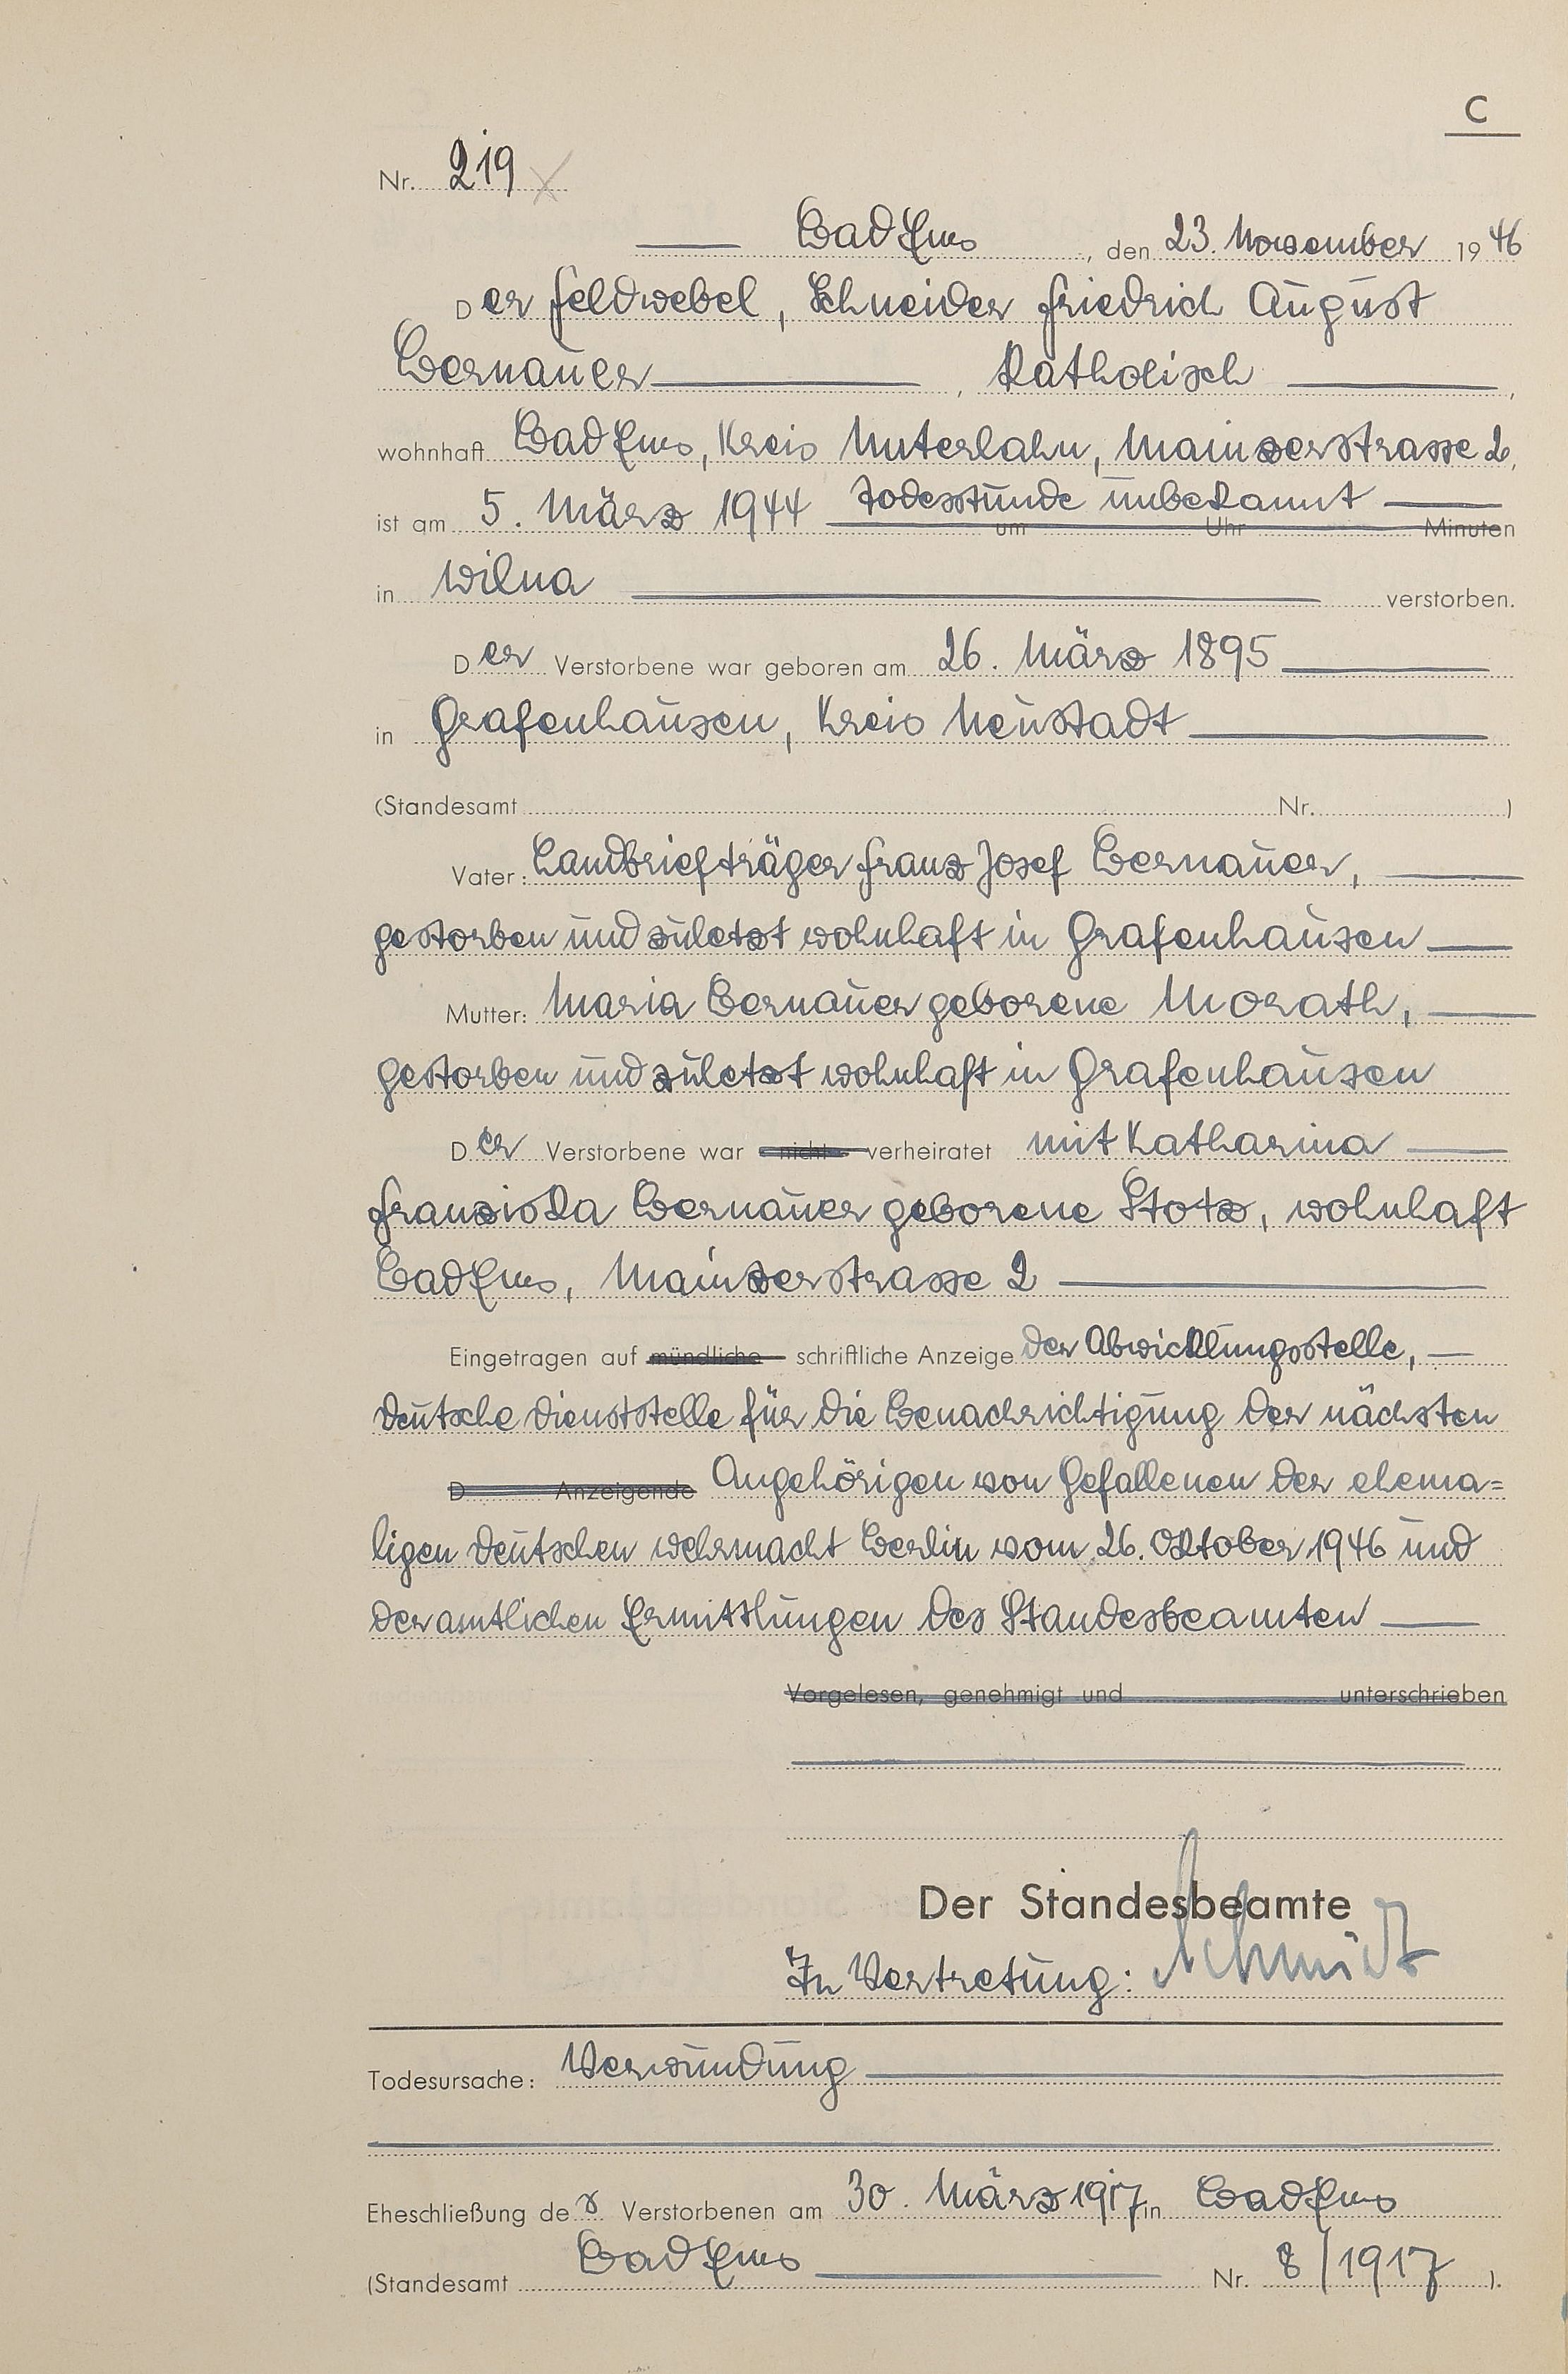 C
Nr. 219
Bad Ems, den 23. November 1946
Der Feldwebel, Schneider Friedrich August
Bernauer, katholisch,
wohnhaft Bad Ems, Kreis Unterlahn, Mainzerstrasse 2,
ist am 5. März 1944 Todesstunde unbekannt
um Uhr Minuten
in Wilna verstorben.
Der Verstorbene war geboren am 26. März 1895
in Grafenhausen, Kreis Neustadt
(Standesamt Nr. )
Vater: Landbriefträger Franz Josef Bernauer,
gestorben und zuletzt wohnhaft in Grafenhausen
Mutter: Maria Bernauer geborene Morath,
gestorben und zuletzt wohnhaft in Grafenhausen
Der Verstorbene war nicht verheiratet mit Katharina
Franziska Bernauer geborene Stotz, wohnhaft
Bad Ems, Mainzerstrasse 2
Eingetragen auf mündliche schriftliche Anzeige der Abwicklungsstelle,
Deutsche Dienststelle für die Benachrichtigung der nächsten
D Anzeigende Angehörigen von Gefallenen der ehema=
ligen deutschen Wehrmacht Berlin vom 26. Oktober 1946 und
der amtlichen Ermittlungen des Standesbeamten
Vorgelesen, genehmigt und unterschrieben
Der Standesbeamte
In Vertretung: Schmidt
Todesursache: Verwundung
Eheschließung der Verstorbenen am 30. März 1917 in Bad Ems
(Standesamt Bad Ems Nr. 8/1917 ).